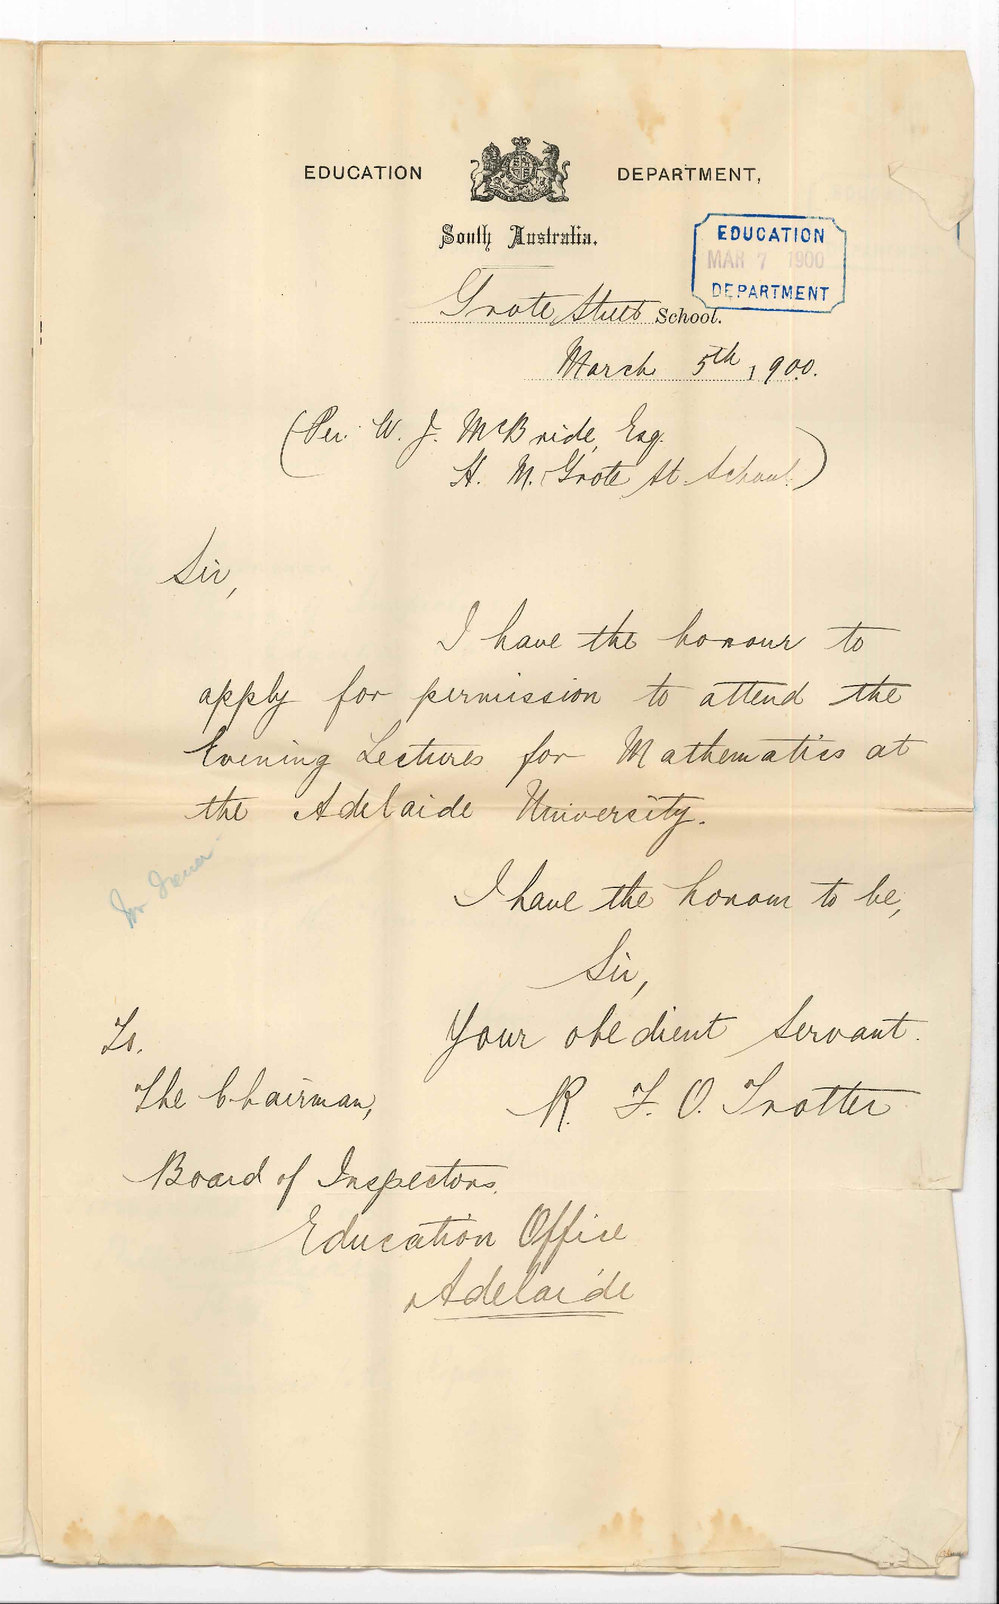 EDUCATION DEPARTMENT,
South Australia.
EDUCATION
MAR 7 1900
DEPARTMENT
Grote Street School.
March 5th, 1900.
(Per. W. J. McBride, Esq.
H. M. Grote St. School.)
Sir,
I have the honour to
apply for permission to attend the
Evening Lectures for Mathematics at
the Adelaide University.
I have the honour to be,
Sir,
Your obedient Servant.
R. F. O. Trotter
To.
The Chairman,
Board of Inspectors.
Education Office
Adelaide